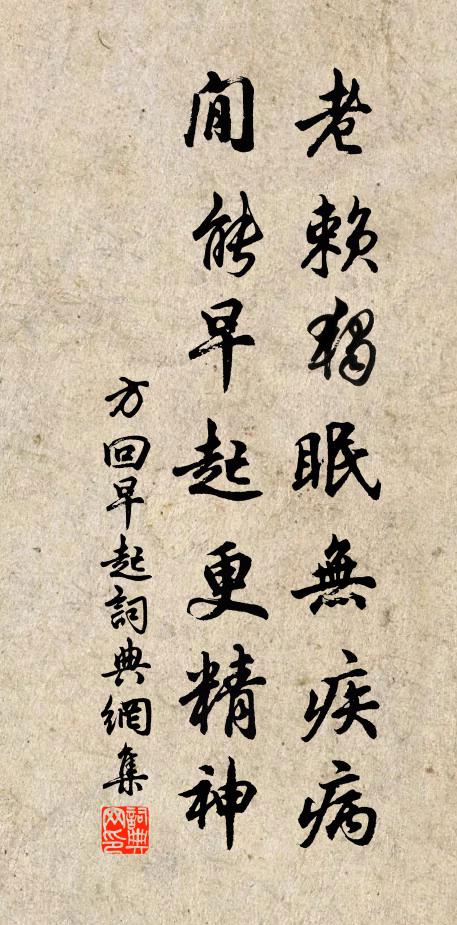 老賴獨眠無疾病
閒能早起更精神
方回早起詞典網集
詞典网印